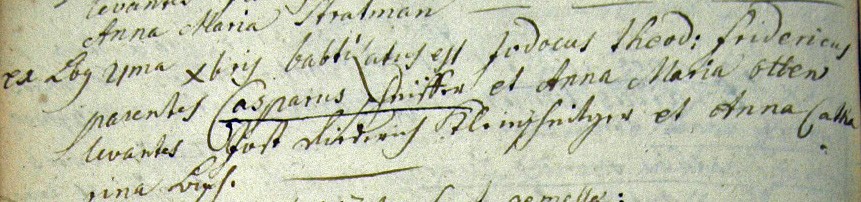 levantes
Anna Maria Stratman
ex Log 2ma Xbris babtizatus est Jodocus theod: fridericus
parentes Casparus et Anna Maria Otten
levantes Jost Diederich Kleinschnitger et Anna Catha
rina
gemelli: